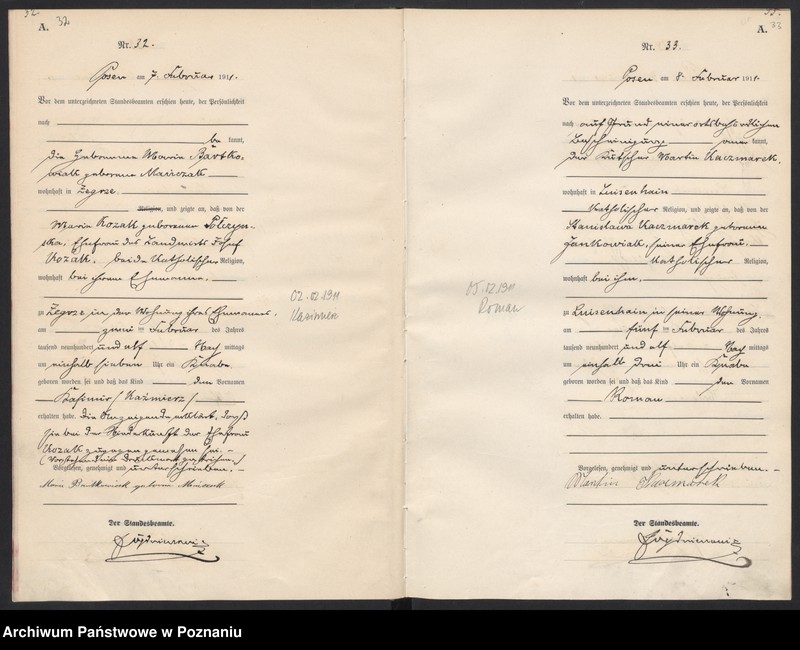 32.
32
A.
Nr. 32.
Posen am 7. Februar 1911.
Vor dem unterzeichneten Standesbeamten erschien heute, der Persönlichkeit
nach
be kannt,
die Hebamme Maria Bartko-
wiak geborene
wohnhaft in Zegrze
Religion, und zeigte an, daß von der
Maria Kozak geborenen
ska, Ehefrau des Landwirts Josef
Kozak, beide katholischer Religion,
wohnhaft bei ihrem Ehemanne
zu Zegrze in der Wohnung ihres Ehemannes,
am zwei ten Februar des Jahres
tausend neunhundert und elf Nachmittags
um einhalb sieben Uhr ein Knabe
geboren worden sei und daß das Kind den Vornamen
Kasimir /Kaźmierz/
erhalten habe. Die Anzeigende erklärt, daß
sie bei der Niederkunft der Ehefrau
Kozak zugegen gewesen sei. –
(Vorstehend ein Druckwort gestrichen.)
Vorgelesen, genehmigt und unterschrieben. –
Maria Bartkowiak geborene
Der Standesbeamte.
02.02.1911
Kazimierz
33.
33
A.
Nr. 33.
Posen am 8. Februar 1911.
Vor dem unterzeichneten Standesbeamten erschien heute, der Persönlichkeit
nach auf Grund einer ortsbehördlichen
Bescheinigung aner kannt,
der Kutscher Martin Kaczmarek,
wohnhaft in Luisenhain
katholischer Religion, und zeigte an, daß von der
Stanisława Kaczmarek geborenen
Jankowiak, seiner Ehefrau,
katholischer Religion,
wohnhaft bei ihm,
zu Luisenhain in seiner Wohnung,
am fünf ten Februar des Jahres
tausend neunhundert und elf Nachmittags
um einhalb drei Uhr ein Knabe
geboren worden sei und daß das Kind den Vornamen
Roman
erhalten habe.
Vorgelesen, genehmigt und unterschrieben. –
Martin Kaczmarek
Der Standesbeamte.
Roman
Archiwum Państwowe w Poznaniu